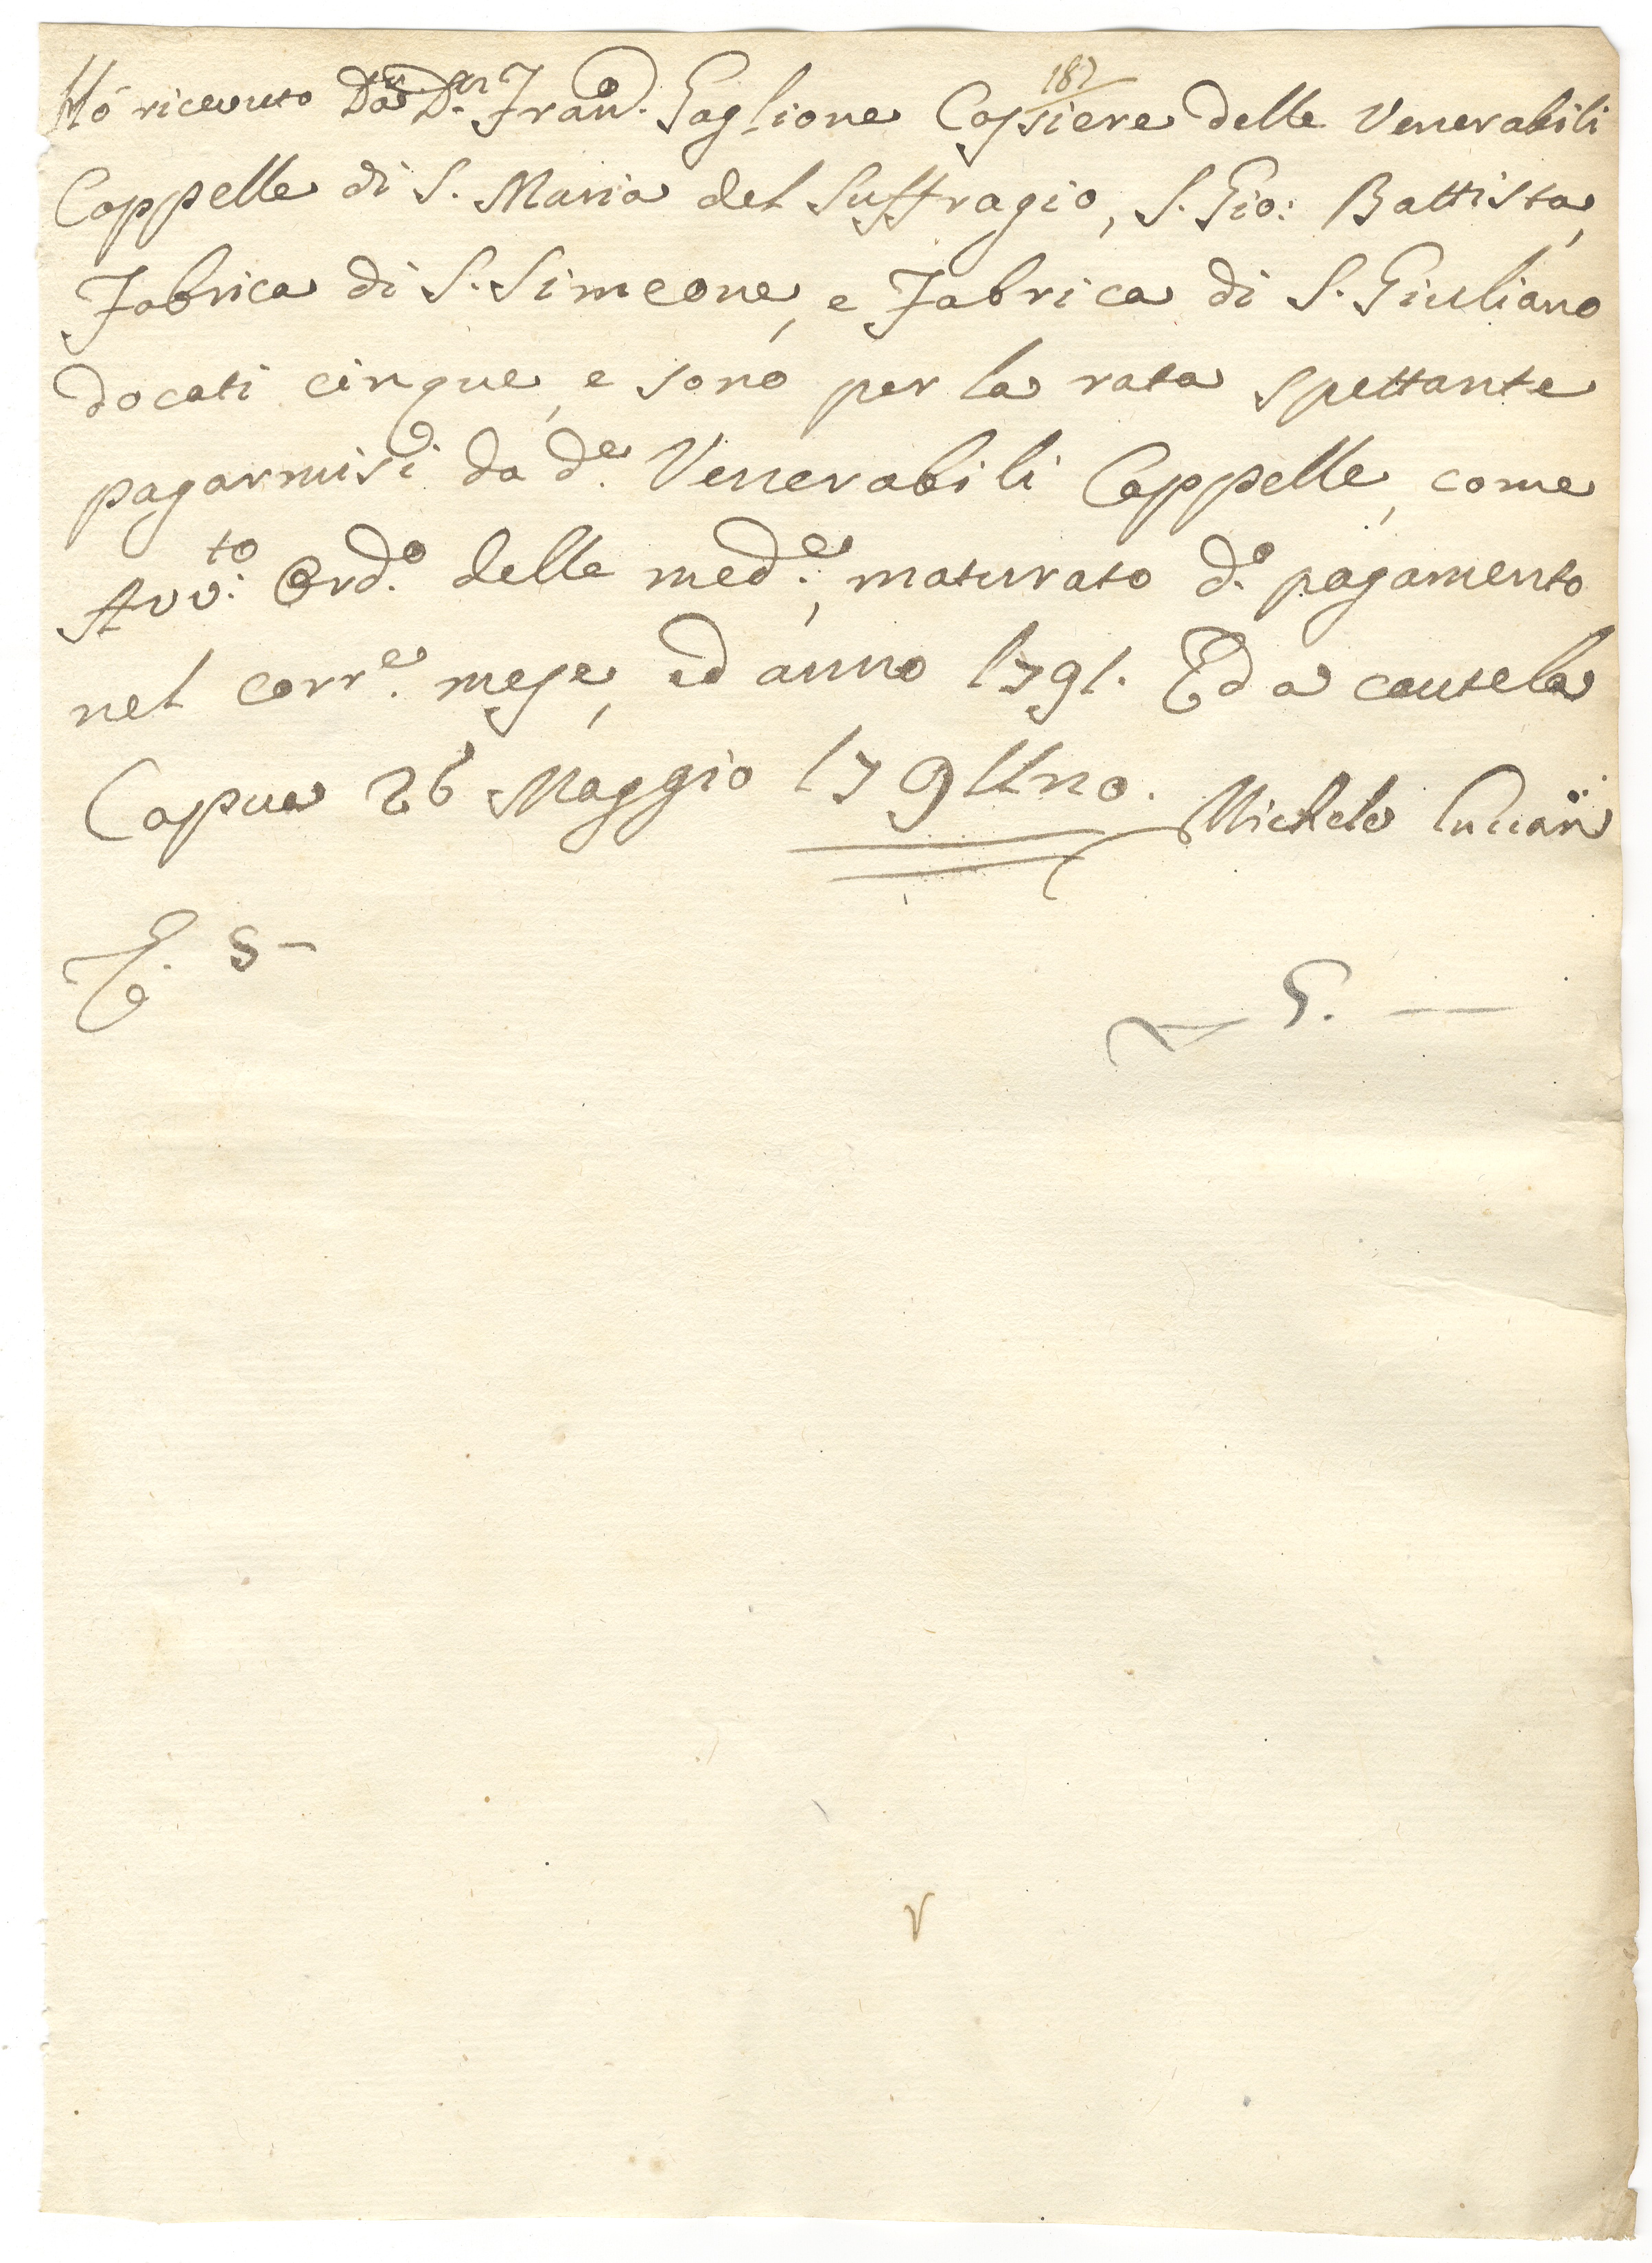 187
Hó ricevuto Dal D.r Fran.o Gaglione Cassiere delle Venerabili
Cappelle di S. Maria del Suffragio, S. Gio: Battista,
Fabrica di S. Simeone, e Fabrica di S. Giuliano
docati cinque, e sono per la rata spettante
pagarmisi da d.e Venerabili Cappelle, come
Avv.to Ord.o delle med.e, maturato d.o pagamento
nel corr.e mese, ed anno 1791. Ed a cautela
Capua 26 Maggio 179Uno. Michele
5–
5. —